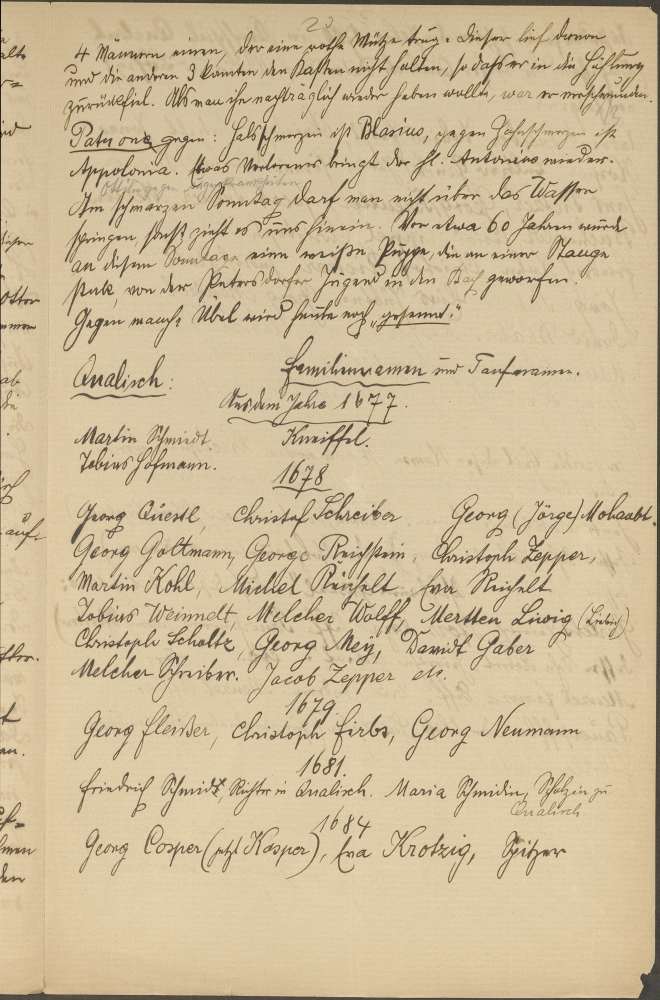 20
4 Männern einen, der eine rothe Mütze trug. Dieser lief davon
und die anderen 3 konnten den Kasten nicht halten, so daß er in die Höhlung
zurückfiel. Als man ihn nachträglich wieder heben wollte, war er verschwunden.
Patrone gegen: Halsschmerzen ist Blasius, gegen Zahnschmerzen ist
Appolonia. Etwas Verlorenes bringt der hl. Antonius wieder.
Ottilia gegen Augenkrankheiten
Am schwarzen Sonntag darf man nicht über das Wasser
springen, sonst zieht es uns hinein. Vor etwa 60 Jahren wurde
an diesem Sonntage eine weiße Puppe, die an einer Stange
stak, von der Petersdorfer Jugend in den Bach geworfen.
Gegen manches Übel wird heute noch "gesennt."
Qualisch: Familiennamen und Taufnamen.
Aus dem Jahre 1677.
Martin Schmidt. Kneiffel.
Tobias Hofmann.
1678
Georg Questl, Christof Schreiber Georg (Jörge) Mohaabt.
Georg Goltmann, George Reichstein, Christoph Zepper,
Martin Kohl, Michel Reichelt, Eva Reichelt
Tobias Weinndt, Melcher Wolff, Mertten Liwig (Liebich)
Christoph Scholtz, Georg Mey, Davidt Gaber
Melcher Schreiber. Jacob Zepper etc.
1679.
Georg Fleißer, Christoph Firbs, Georg Neumann
1681.
Friedrich Schmidt, Richter in Qualisch. Maria Schmiden, Scholzin zu
Qualisch
1684
Georg Cosper (jetzt Kasper), Eva Krotzig, Spitzer